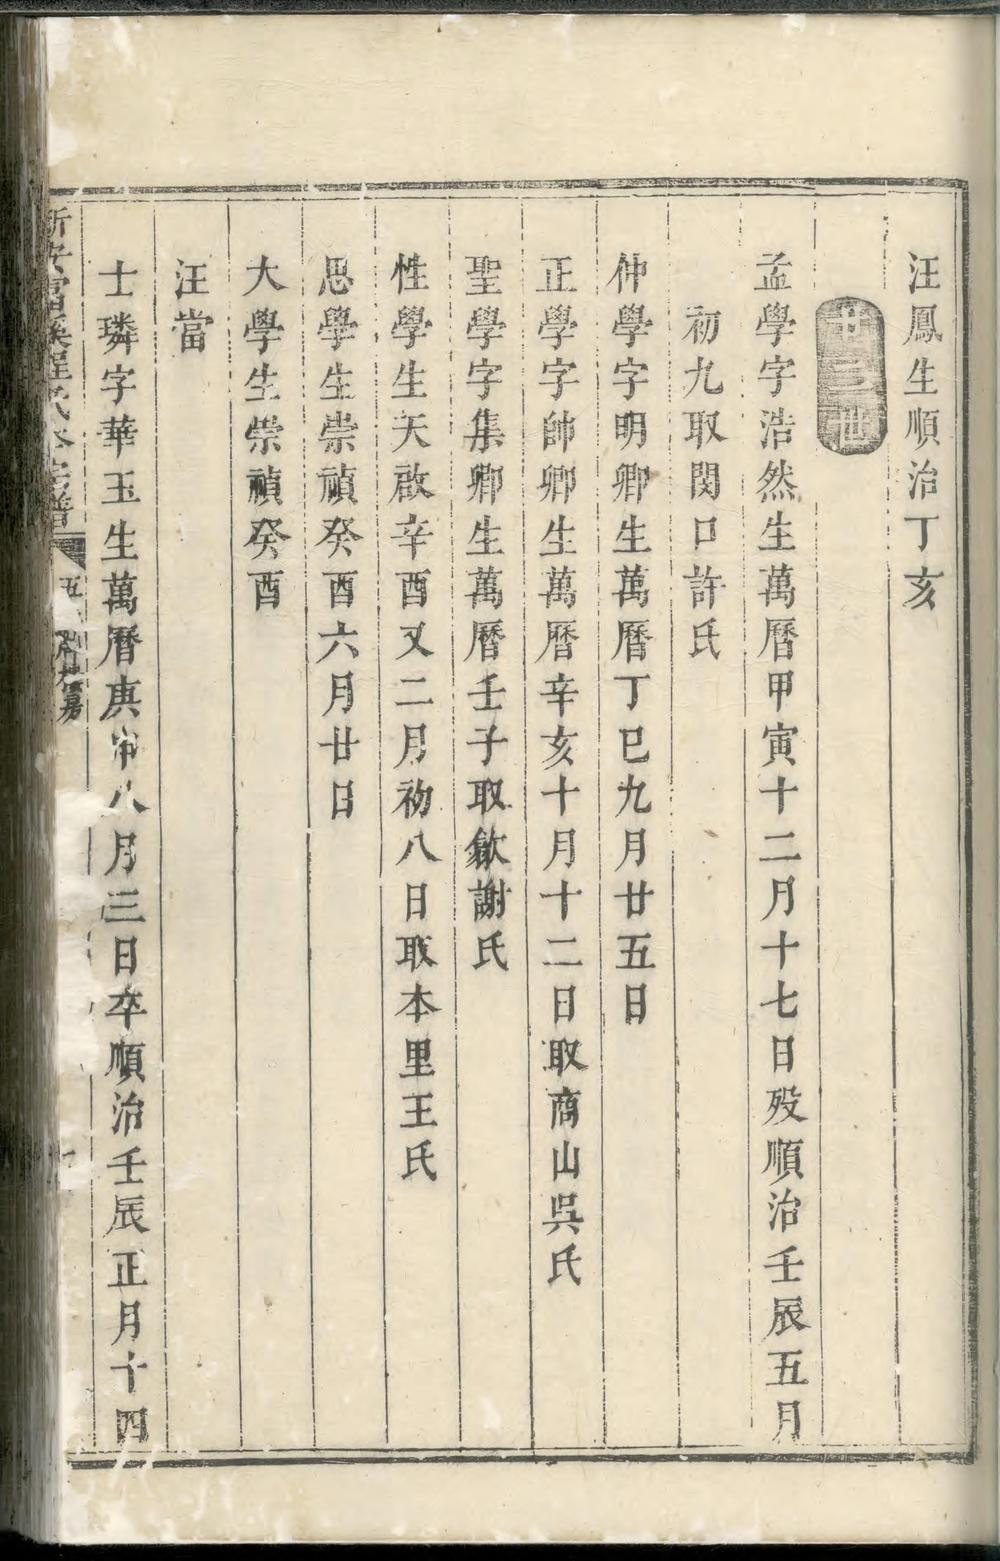 汪鳳生順治丁亥
廿二世
孟學字浩然生萬曆甲寅十二月十七日歿順治壬辰五月
初九取閔口許氏
仲學字明卿生萬曆丁巳九月廿五日
正學字師卿生萬曆辛亥十月十二日取商山吳氏
聖學字集卿生萬曆壬子取歙謝氏
性學生天啟辛酉又二月初八日取本里王氏
思學生崇禎癸酉六月廿日
大學生崇禎癸酉
汪當
士璘字華玉生萬曆庚申八月三日卒順治壬辰正月十四
新安富溪程氏本宗譜 五